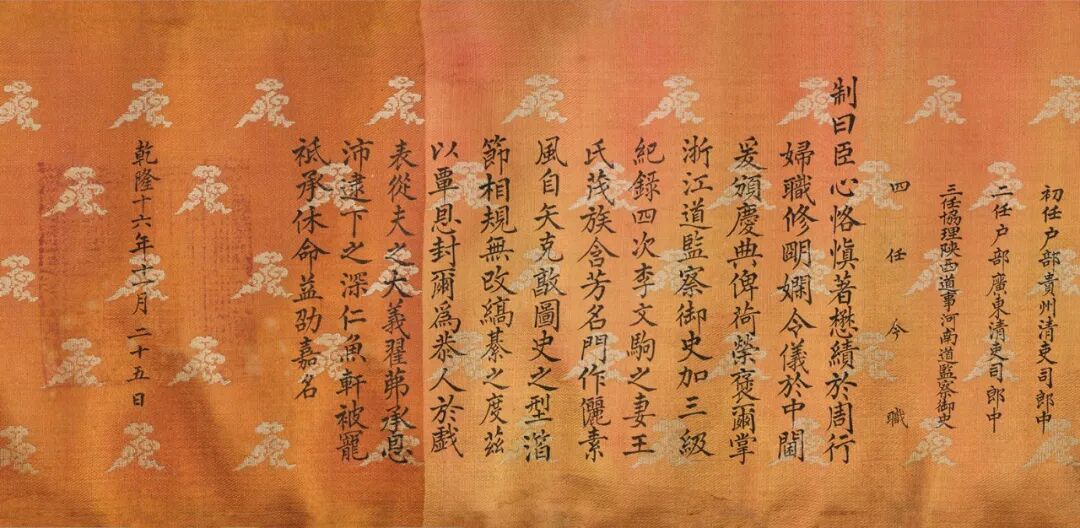 初任户部貴州清吏司郎中
二任户部廣東清吏司郎中
三任協理陝西道事河南道監察御史
四任今職
制曰臣心恪慎著懋績於周行
婦職修明嫻令儀於中閫
爰頒慶典俾荷榮褒爾掌
浙江道監察御史加三級
紀錄四次李文駒之妻王
氏茂族含芳名門作儷素
風自矢克敦圖史之型㴞
節相規無改縞綦之度茲
以覃恩封爾為恭人於戲
表從夫之大義翟茀承恩
沛逮下之深仁魚軒被寵
祗承休命益劭嘉名
乾隆十六年十一月二十五日